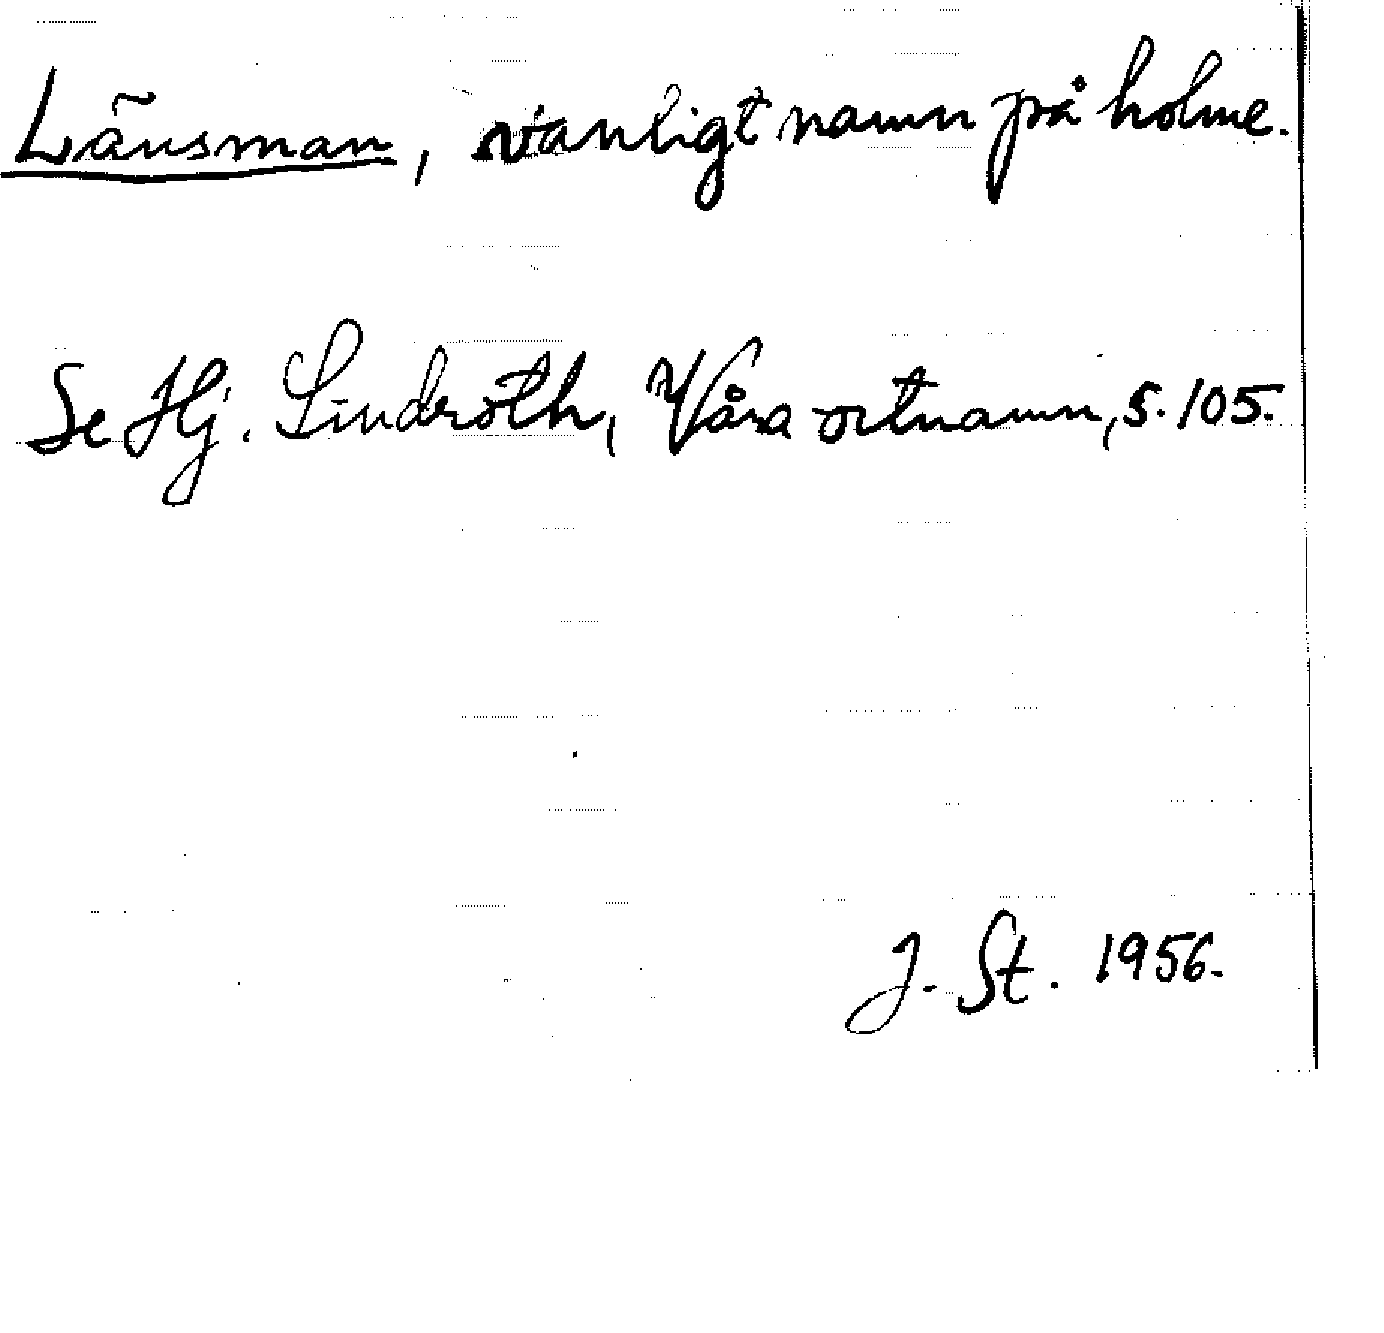 Länsman, vanligt namn på holme.
Se Hj. Lindroth, Våra ortnamn, s. 105.
J. St. 1956.